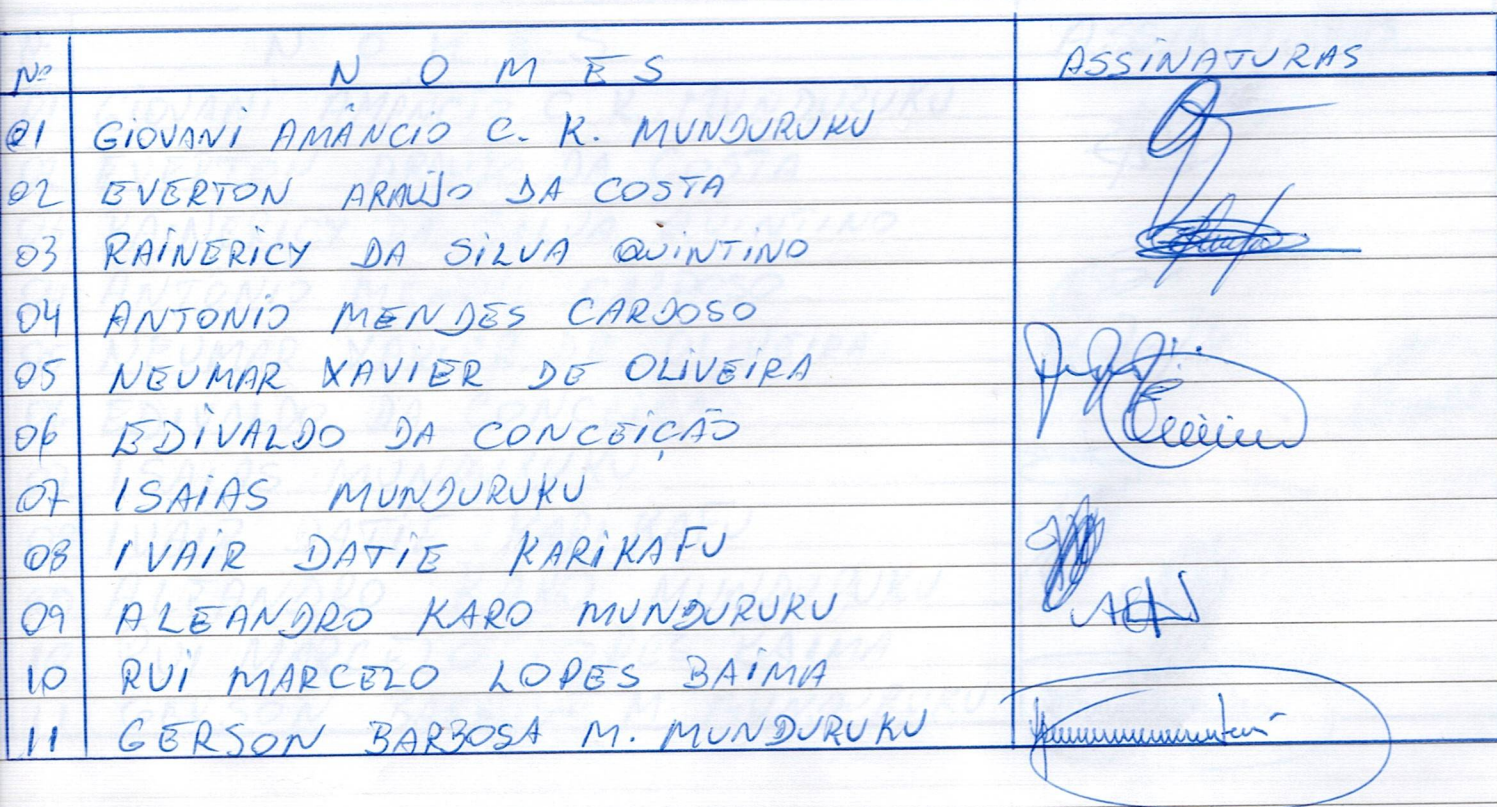 Nº NOMES ASSINATURAS
01 GIOVANI AMÂNCIO C. K. MUNDURUKU
02 EVERTON ARAÚJO DA COSTA
03 RAINERICY DA SILVA QUINTINO
04 ANTONIO MENDES CARDOSO
05 NEUMAR XAVIER DE OLIVEIRA
06 EDIVALDO DA CONCEIÇÃO
07 ISAIAS MUNDURUKU
08 IVAIR DATIE KARIKAFU
09 ALEANDRO KARO MUNDURUKU
10 RUI MARCELO LOPES BAIMA
11 GERSON BARBOSA M. MUNDURUKU